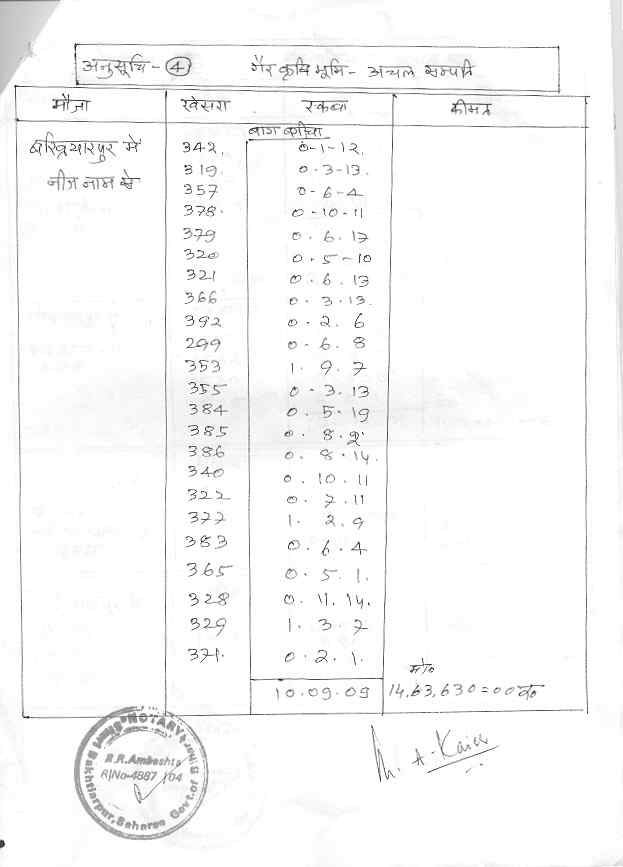 अनुसूचि - 4 गैर कृषि भूमि - अचल सम्पति
मौजा खेसरा रकबा कीमत
बाग बगीचा
बख्तियारपुर में 342. 0-1-12.
नीज नाम से 319. 0.3-13.
357 0-6-4
378. 0-10-11
379 0.6.17
320 0.5-10
321 0.6.13
366 0.3.13.
392 0.2.6
299 0-6.8
353 1.9.7
355 0-3.13
384 0.5.19
385 0.8.2
386 0.8.14.
340 0.10.11
322 0.7.11
377 1.2.9
383 0.6.4
365 0.5.1.
328 0.11.14.
329 1.3.7
371. 0.2.1.
मो०
10.09.09 14,63,630=00 रु०
M. A. Kaiser
NOTARY
R.R.Ambashta
R/No-4887/04
Bakhtiarpur, Saharsa Govt.of Bihar